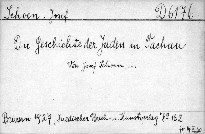 Schoen, Josef
D 6176
Die Geschichte der Juden in Tachau
Von Josef Schoen ...
Brünn 1927, Jüdischer Buch- u. Kunstverlag 8° 16 S.